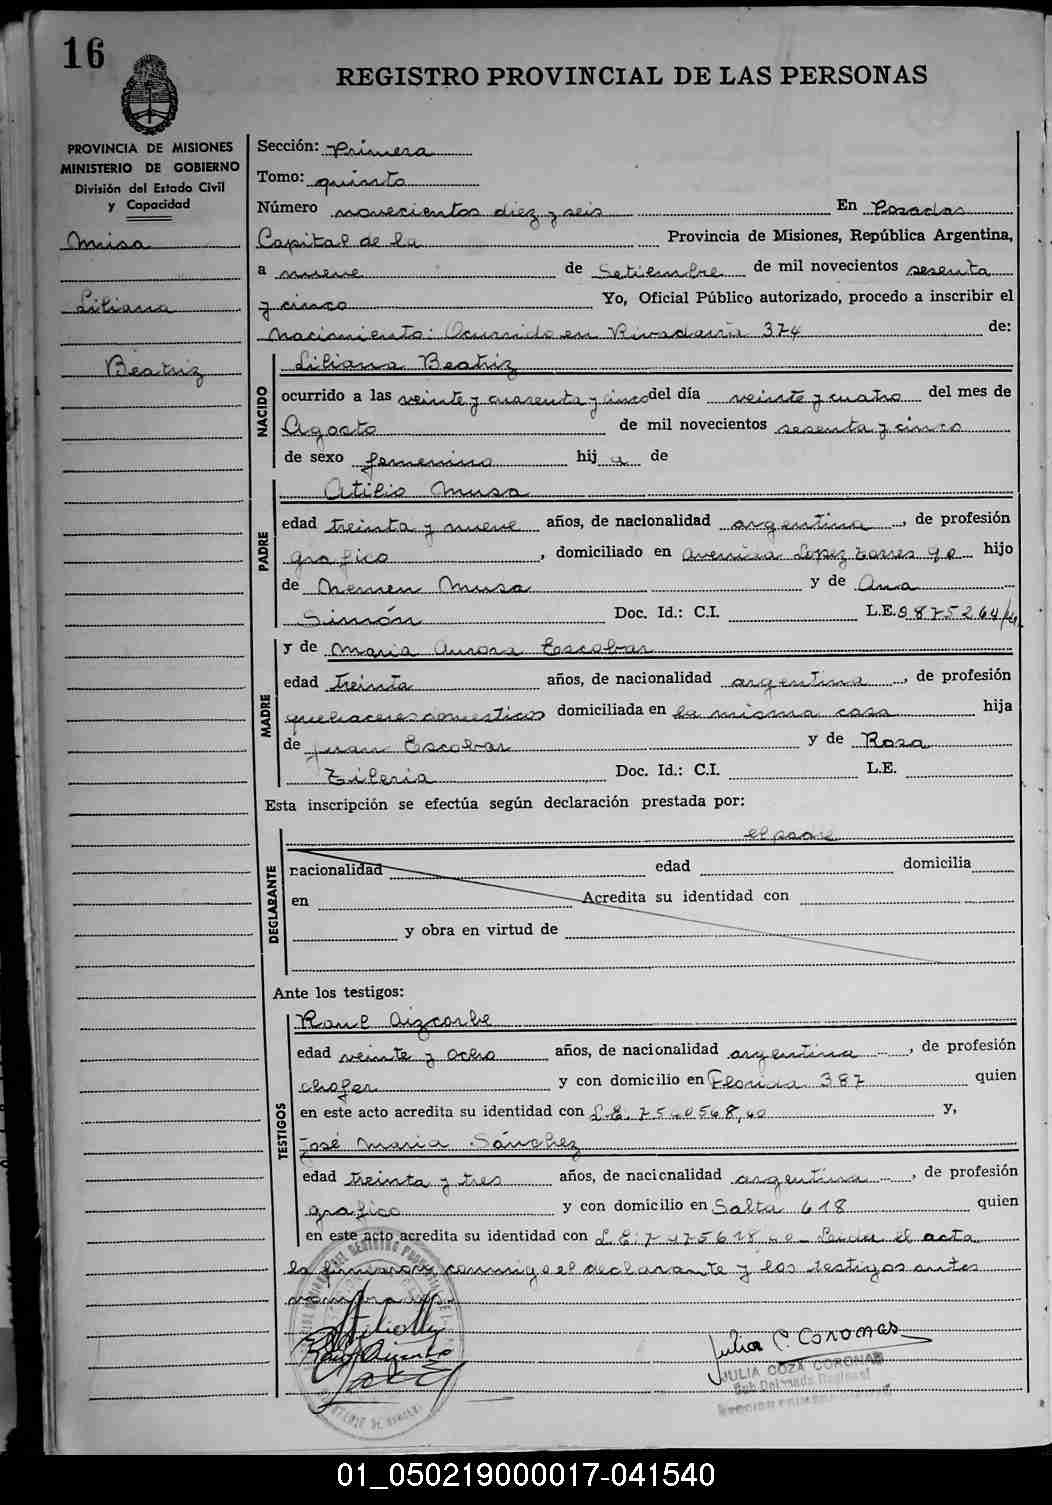 16
REGISTRO PROVINCIAL DE LAS PERSONAS
PROVINCIA DE MISIONES
MINISTERIO DE GOBIERNO
División del Estado Civil
y Capacidad
Musa
Liliana
Beatriz
Sección: Primera
Tomo: quinto
Número novecientos diez y seis En Posadas
Capital de la Provincia de Misiones, República Argentina,
a nueve de Setiembre de mil novecientos sesenta
y cinco Yo, Oficial Público autorizado, procedo a inscribir el
Nacimiento: Ocurrido en Rivadavia 374 de:
NACIDO
Liliana Beatriz
ocurrido a las veinte y cuarenta y cinco del día veinte y cuatro del mes de
Agosto de mil novecientos sesenta y cinco
de sexo femenino hij a de
PADRE
Atilio Musa
edad treinta y nueve años, de nacionalidad argentina, de profesión
grafico, domiciliado en avenida Lopez Torres 90 hijo
de Nemen Musa y de Ana
Simón Doc. Id.: C.I. L.E.
MADRE
y de Maria Aurora Escobar
edad treinta años, de nacionalidad argentina, de profesión
quehaceres domesticos domiciliada en la misma casa hija
de Juan Escobar y de Rosa
Doc. Id.: C.I. L.E.
Esta inscripción se efectúa según declaración prestada por:
el padre
DECLARANTE
nacionalidad edad domicilia
en Acredita su identidad con
y obra en virtud de
Ante los testigos:
TESTIGOS
Raul Aizcorbe
edad veinte y ocho años, de nacionalidad argentina, de profesión
chofer y con domicilio en Florida 387 quien
en este acto acredita su identidad con L.E. 7540568, y,
José Maria Sánchez
edad treinta y tres años, de nacionalidad argentina, de profesión
grafico y con domicilio en Salta 618 quien
en este acto acredita su identidad con L.E. Leida el acta
la firmaron conmigo el declarante y los testigos antes
Julia C. Coronas
JULIA COZA CORONAS
01_050219000017-041540